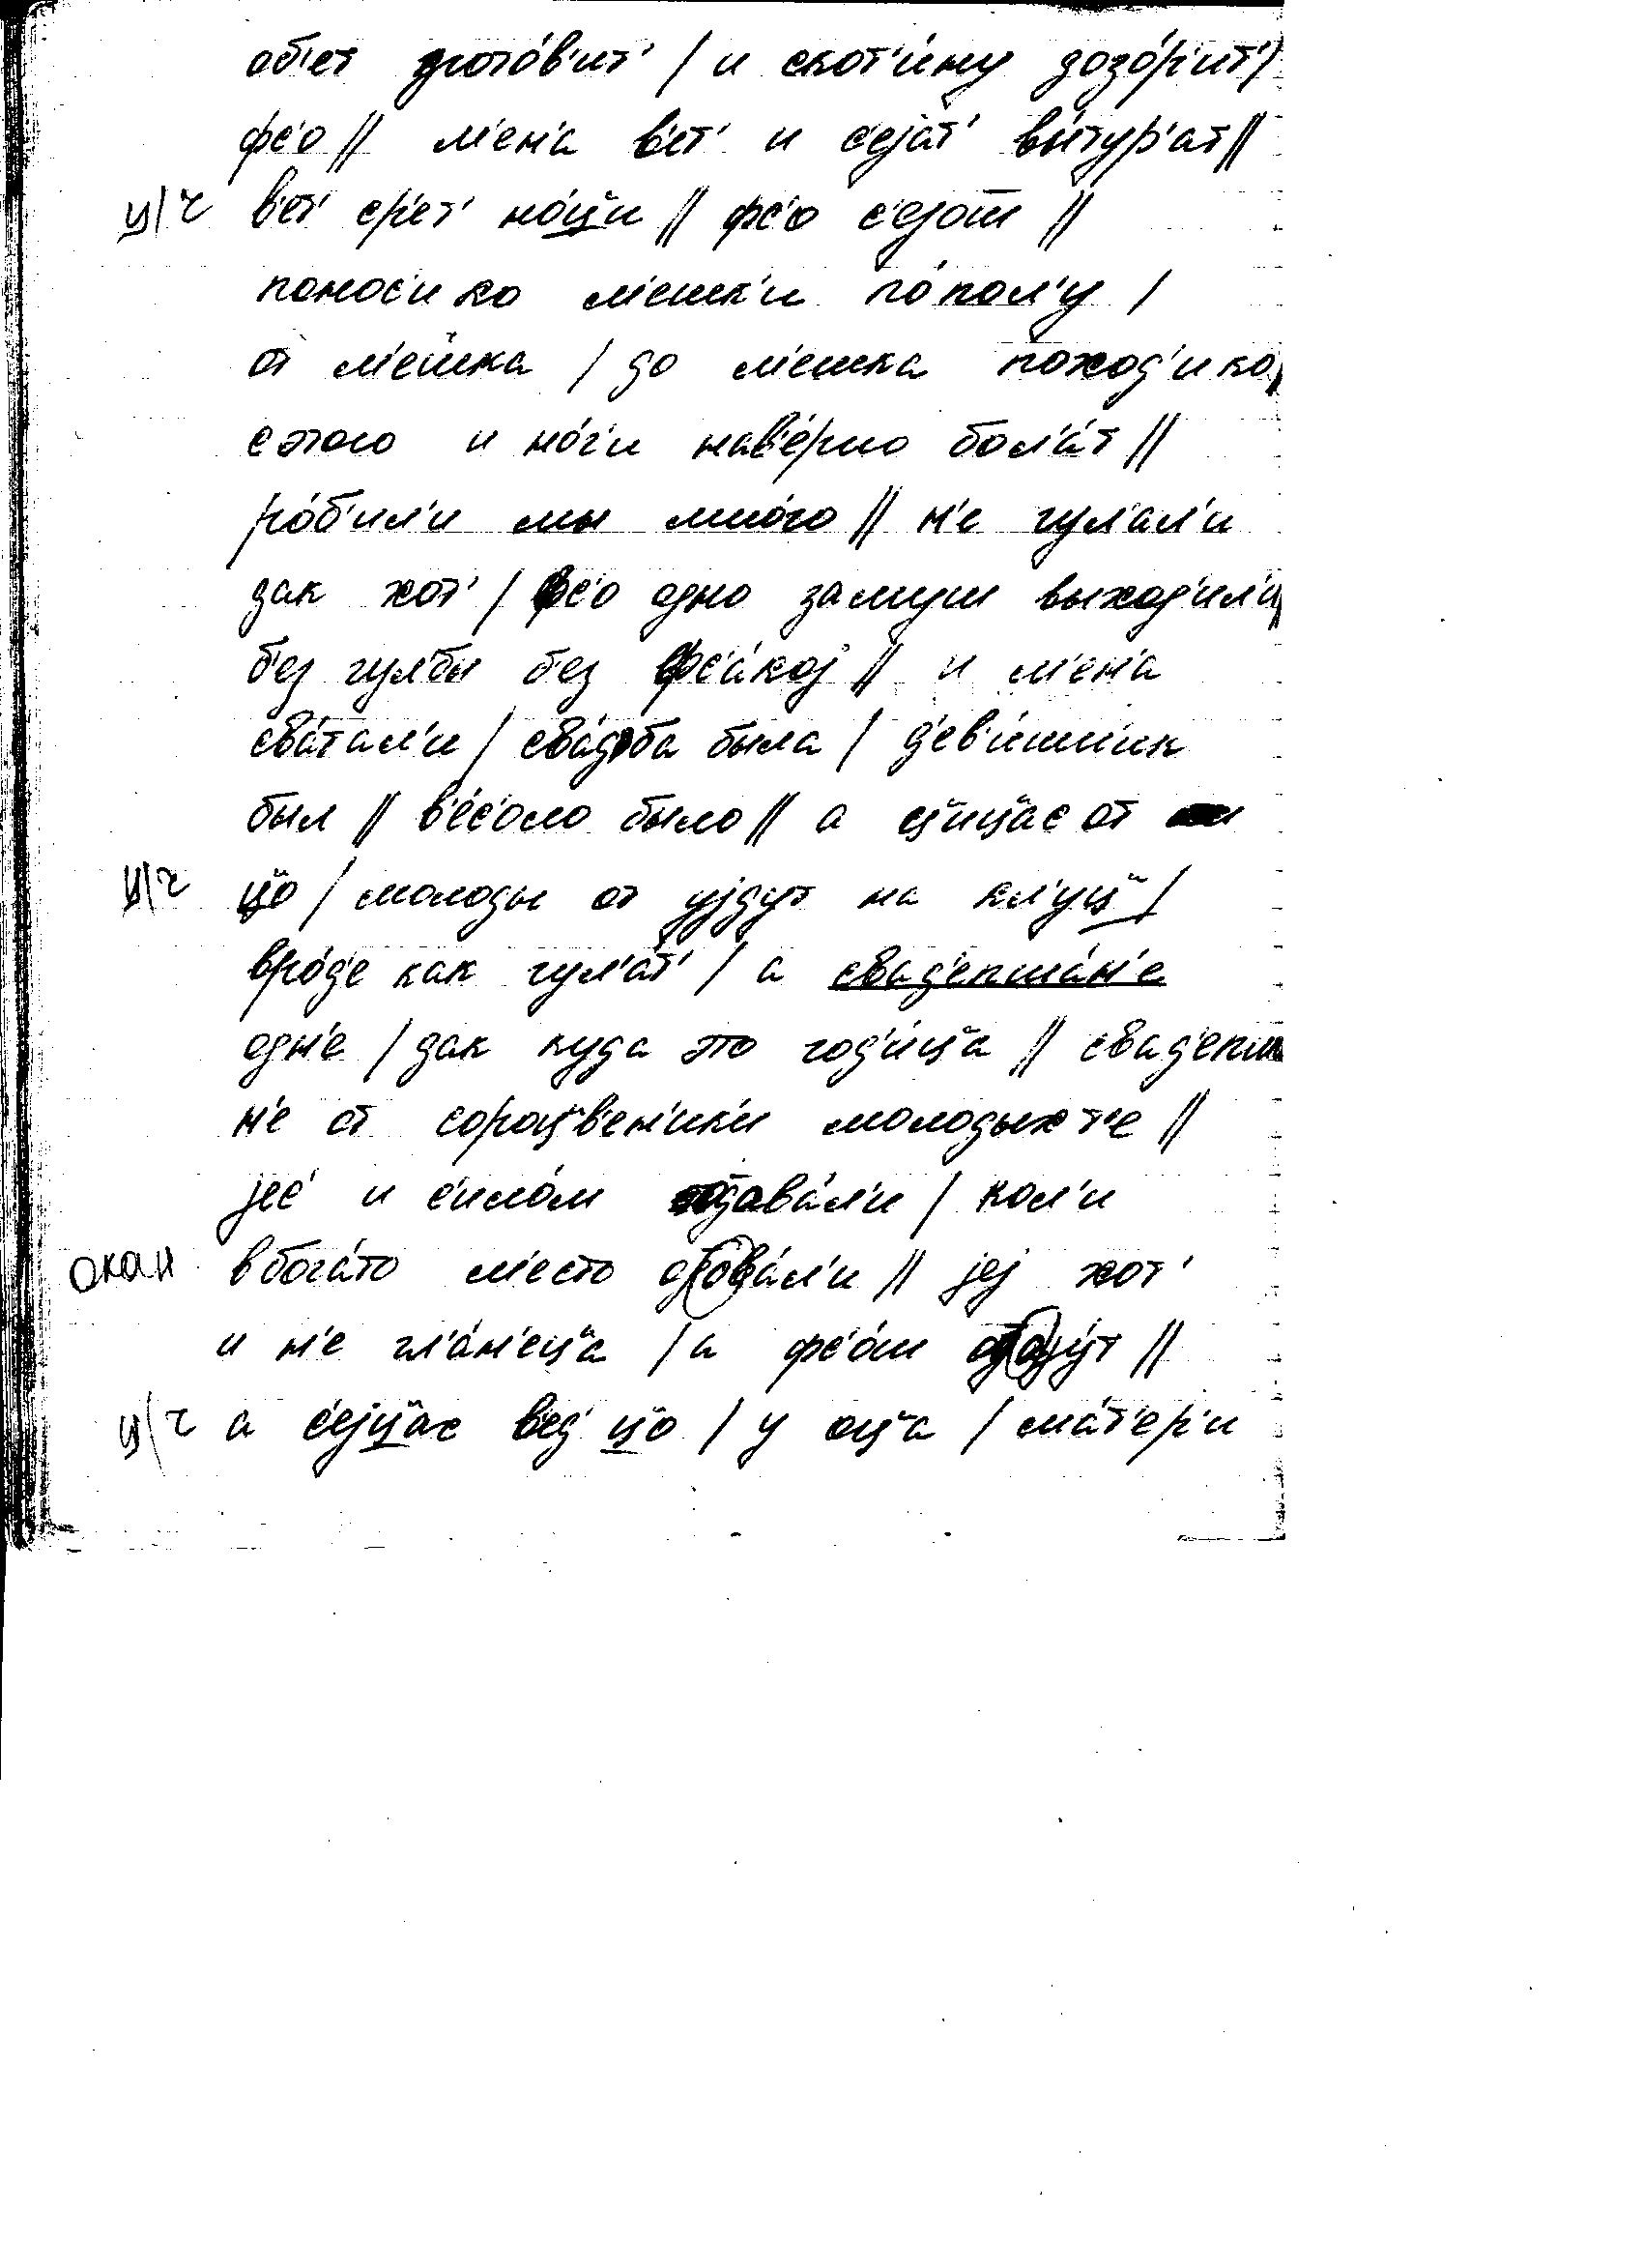 об'ет згото́в'ит' / и скот'и́ну дозо́р'ит' /
фс'о // м'ен'а в'ет' и с'ејат' вы́тур'ат //
ц/ч в'ет' ср'ет' но́ц̈и // фс'о с'ејош //
понос'и ко м'ешк'и по́пол'у /
от м'ешка / до м'ешка поход'и ко,
с этого и но́г'и нав'е́рно бол'а́т //
ро́б'ил'и мы мно́го // н'е гул'ал'и
дак хот' / фс'о одно замуш выход'ил'и,
б'ез гул'бы б'ез фс'а́кој // и м'ен'а
сва́тал'и / сва́д'ба была / д'ев'и́шн'ик
был // в'е́с'оло было // а ц̈иц̈ас от
ц/ч ц̈о / молоды от ујдут на кл'уц̈ /
вро́д'е как гул'ат' / а свад'епша́н'е
одн'е / дак куда это год'и́ц̈а // свад'епша
н'е от сороц̈в'ен'ик'и молодых т'е //
јеје́ и с'ило́м одава́л'и / кол'и
окан в бога́то м'есто одова́л'и // јеј хот'
и н'е гл'а́н'ец̈а / а фс'о́ш ододу́т //
ц/ч а с'ејц̈ас вед' ц̈о / у оц̈а / ма́т'ер'и